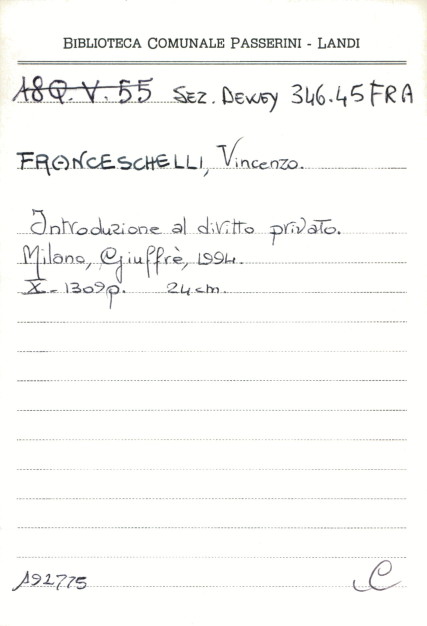 BIBLIOTECA COMUNALE PASSERINI - LANDI
A8Q.V.55 SEZ. DEWEY 346.45 FRA
FRANCESCHELLI, Vincenzo.
Introduzione al diritto privato.
Milano, Giuffrè, 1994.
X-1309p. 24cm.
A92775 C